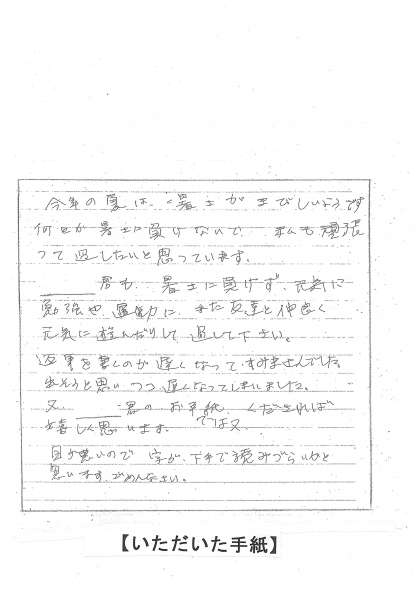 今年の夏は、暑さがきびしいようです
何とか暑さに負けないで、私も頑張
って過したいと思っています。
君も、暑さに負けず、元気に
勉強や運動に、また友達と仲良く
元気に遊んだりして過して下さい。
返事を書くのが遅くなって、すみませんでした。
出そうと思いつつ遅くなってしまいました。
又、君のお手紙、くだされば
嬉しく思います。ではまた
目が悪いので字が、下手で読みづらいかと
思います、ごめんなさい。
【いただいた手紙】